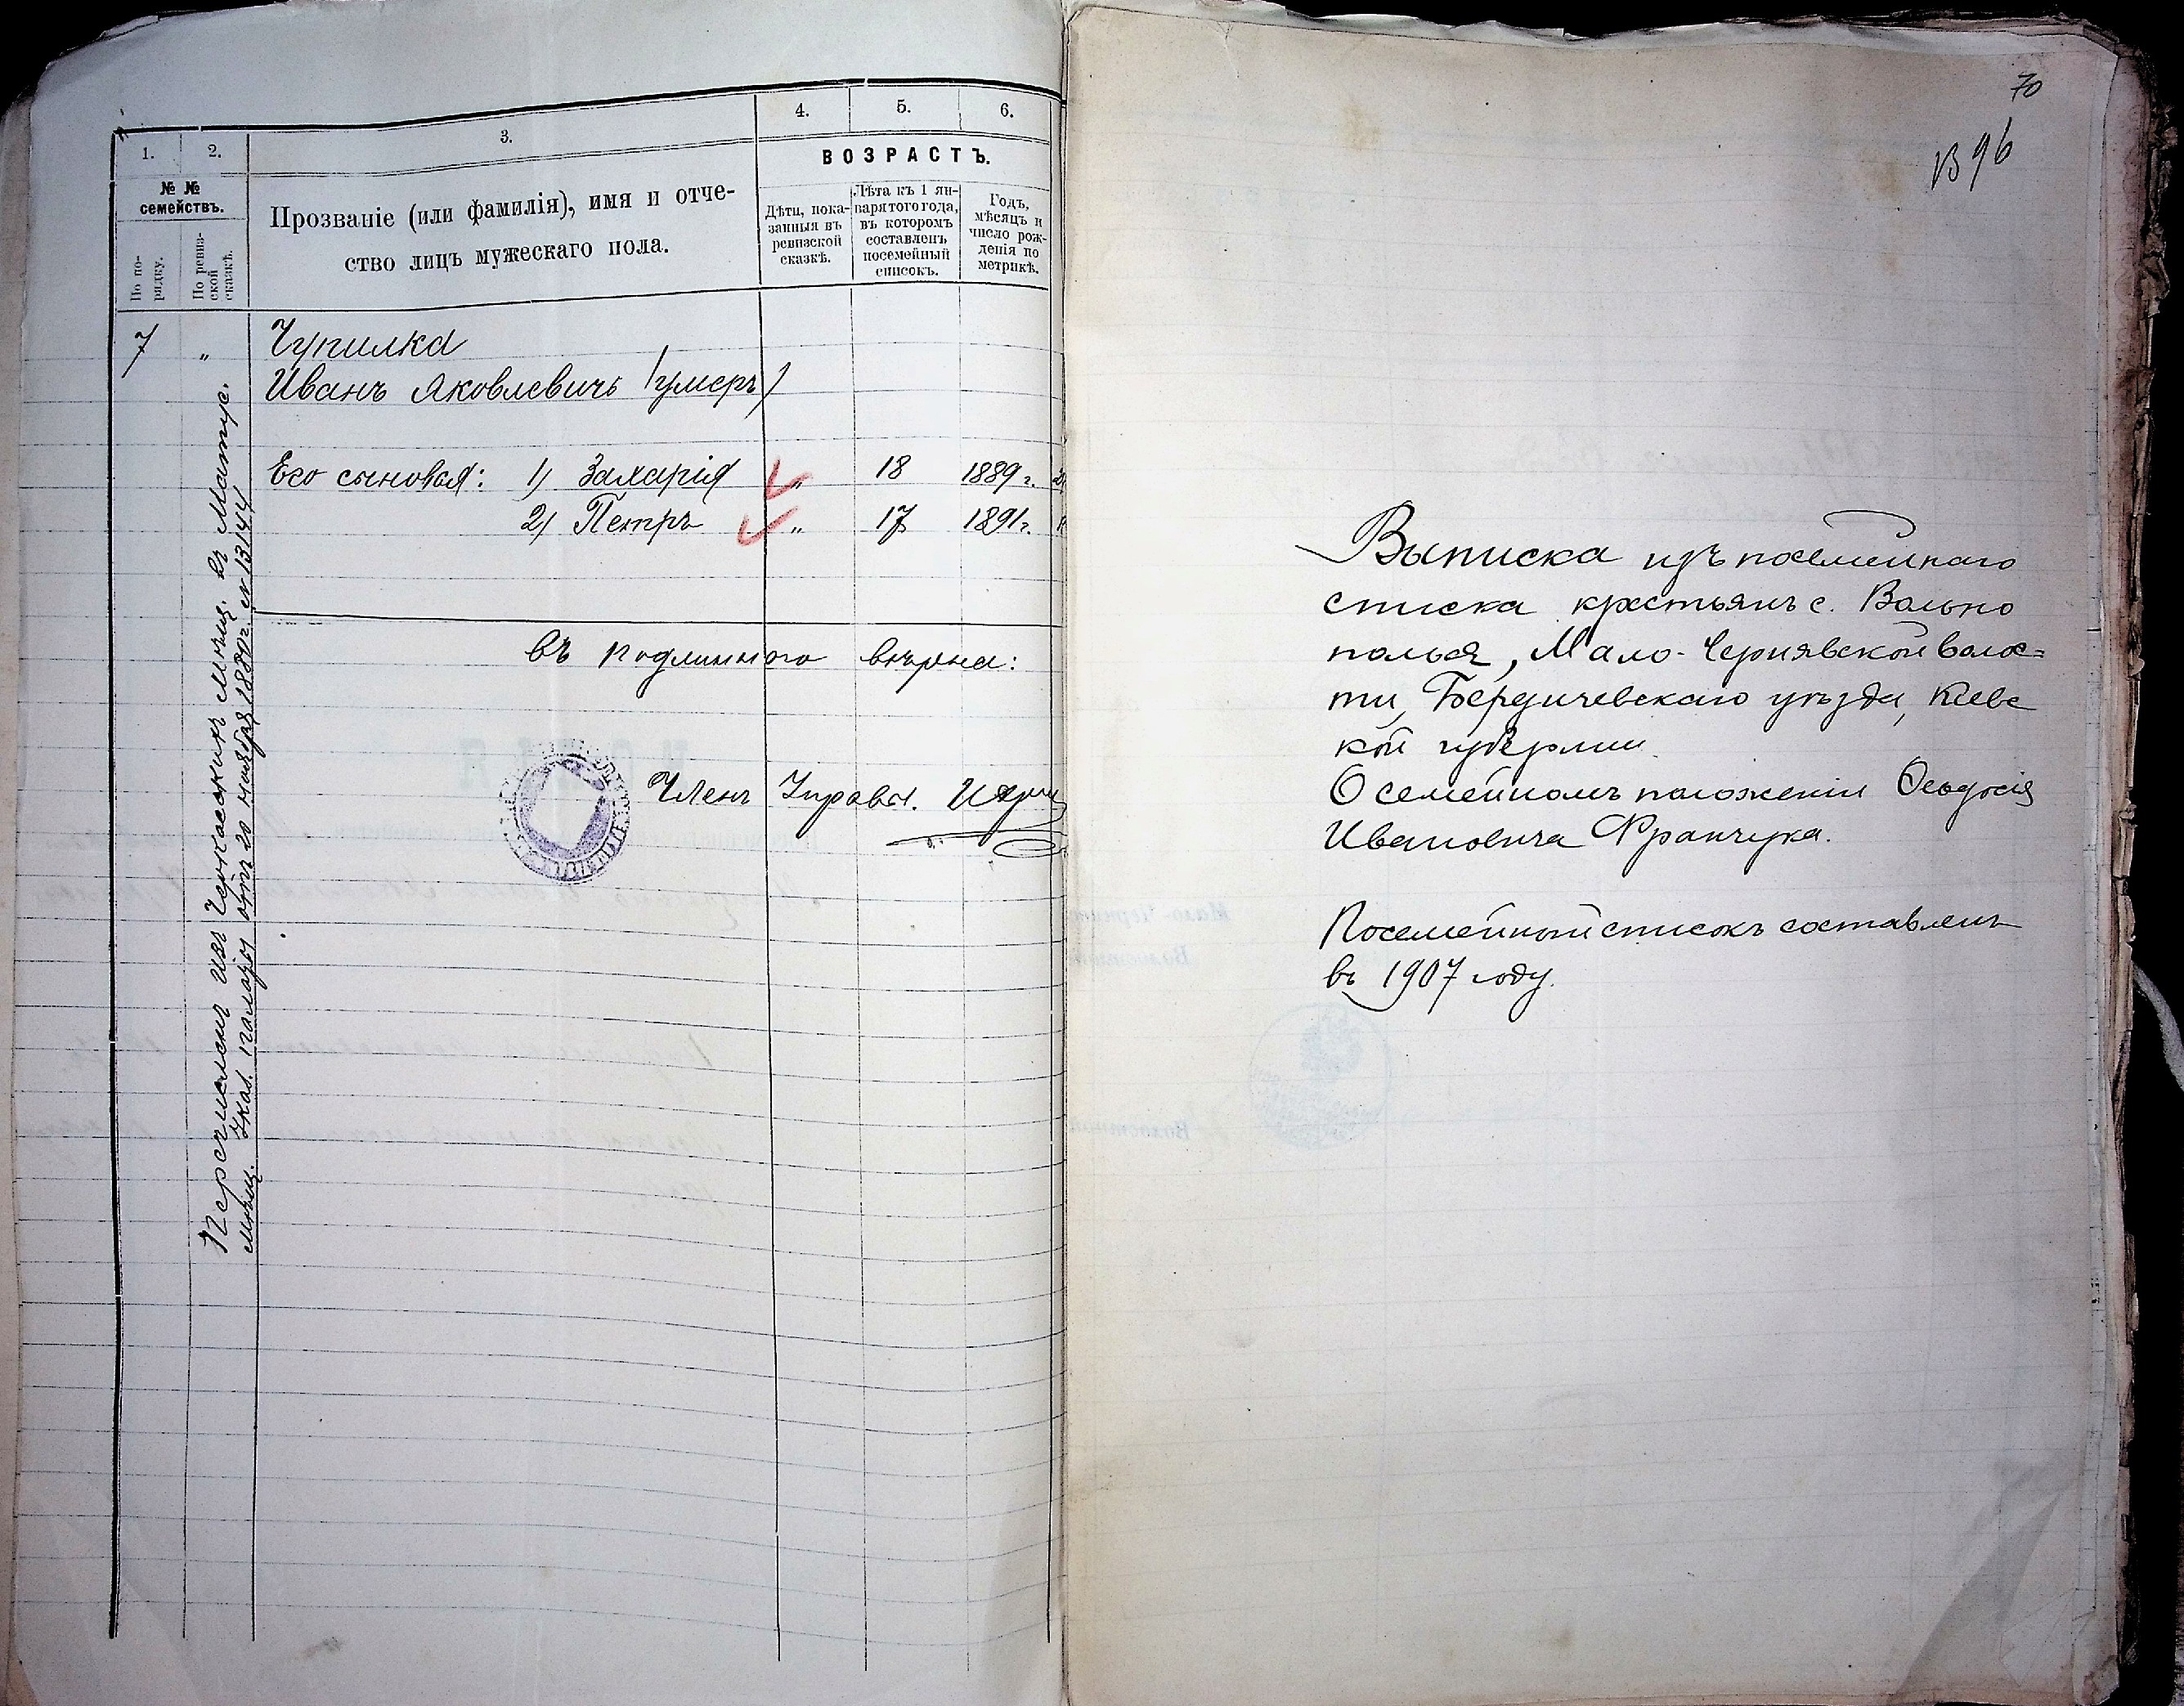 1.
2.
3.
4.
5.
6.
№ №
семействъ.
По по-
рядку.
По ревиз-
ской
сказкѣ.
Прозваніе (или фамилія), имя и отче-
ство лицъ мужескаго пола.
ВОЗРАСТЪ.
Дѣти, пока-
занныя въ
ревизской
сказкѣ.
Лѣта къ 1 ян-
варя того года,
въ которомъ
составленъ
посемейный
списокъ.
Годъ,
мѣсяцъ и
число рож-
денія по
метрикѣ.
7 " Чупилка
Иванъ Яковлевичъ (умеръ)
Его сыновья: 1) Захарія " 18 1889 г.
2) Петръ " 17 1891 г.
Перечисленъ изъ Черкасскихъ мѣщ. въ
мѣщ. Указ. палаты отъ 20 ноября 188 г. № 13144
Съ подлиннымъ вѣрно:
Членъ Управы.
70
В 96
Выписка изъ посемейнаго
списка крестьянъ с. Вольно
полья, Мало-Чернявской волос=
ти, Бердичевскаго уѣзда, Кіевс
кой губерніи.
О семейномъ положеніи Ѳеодосія
Ивановича Франчука.
Посемейный списокъ составленъ
въ 1907 году.